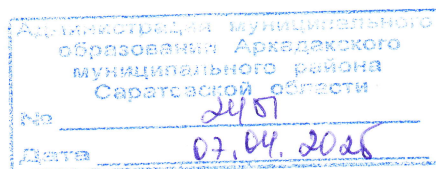 Администрация муниципального
образования Аркадакского
муниципального района
Саратовской области
№
Дата 07.04.2025